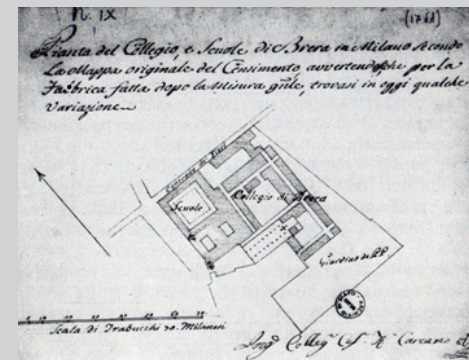 N. IX
(1761)
Pianta del Collegio, e Scuole di Brera in Milano secondo
La Mappa originale del Censimento, avvertendosi che per la
Fabbrica, fatta dopo la Misura gñle, trovasi in oggi qualche
Variazione
Contrada de Fiori
Scuole
Collegio di Brera
Giardino de PP
Scala di Trabucchi 20. Milanesi
Ing. Colleg.
Carcano